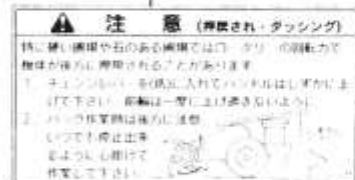 注 意 (押戻され・ダッシング)
特に硬い圃場や石のある圃場ではロータリーの回転力で
機体が後方に押戻されることがあります
1. チェンジレバーを(低)に入れてハンドルはしずかに上
げて下さい。前輪は一度に上げ過ぎないように
2. バック作業時は後方に注意
いつでも停止出来
るように心掛けて
作業して下さい